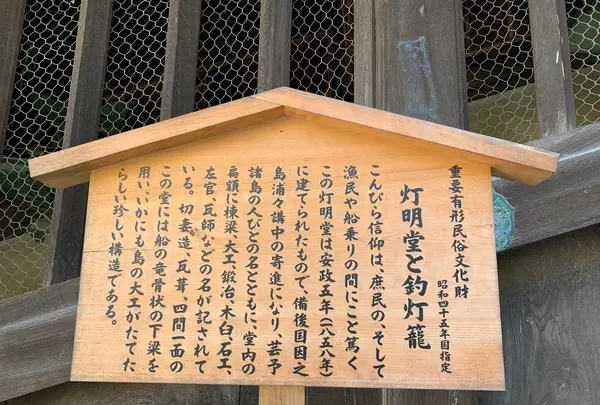 重要有形民俗文化財
昭和四十五年国指定
灯明堂と釣灯籠
こんぴら信仰は、庶民の、そして
漁民や船乗りの間にこと篤く
この灯明堂は安政五年(八五八年)
に建てられたもので、備後国因之
島浦々講中の寄進になり、芸予
諸島の人びとの名とともに、堂内の
扁額に棟梁、大工、鍛冶、木臼、石工、
左官、瓦師などの名が記されて
いる。切妻造、瓦葺、四間一面の
この堂には船の竜骨状の下梁を
用い、いかにも島の大工がたてた
らしい珍しい構造である。